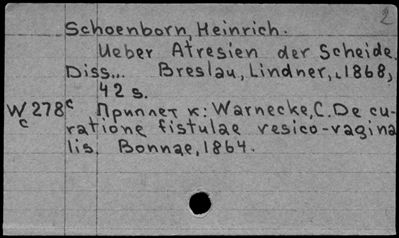 2
Schoenborn, Heinrich.
Ueber Atresien der Scheide.
Diss... Breslau, Lindner, 1868,
42 s.
W 278ᶜ Приплет к: Warnecke, C. De cu-
c
ratione fistulae vesico-vagina
lis. Bonnae, 1864.